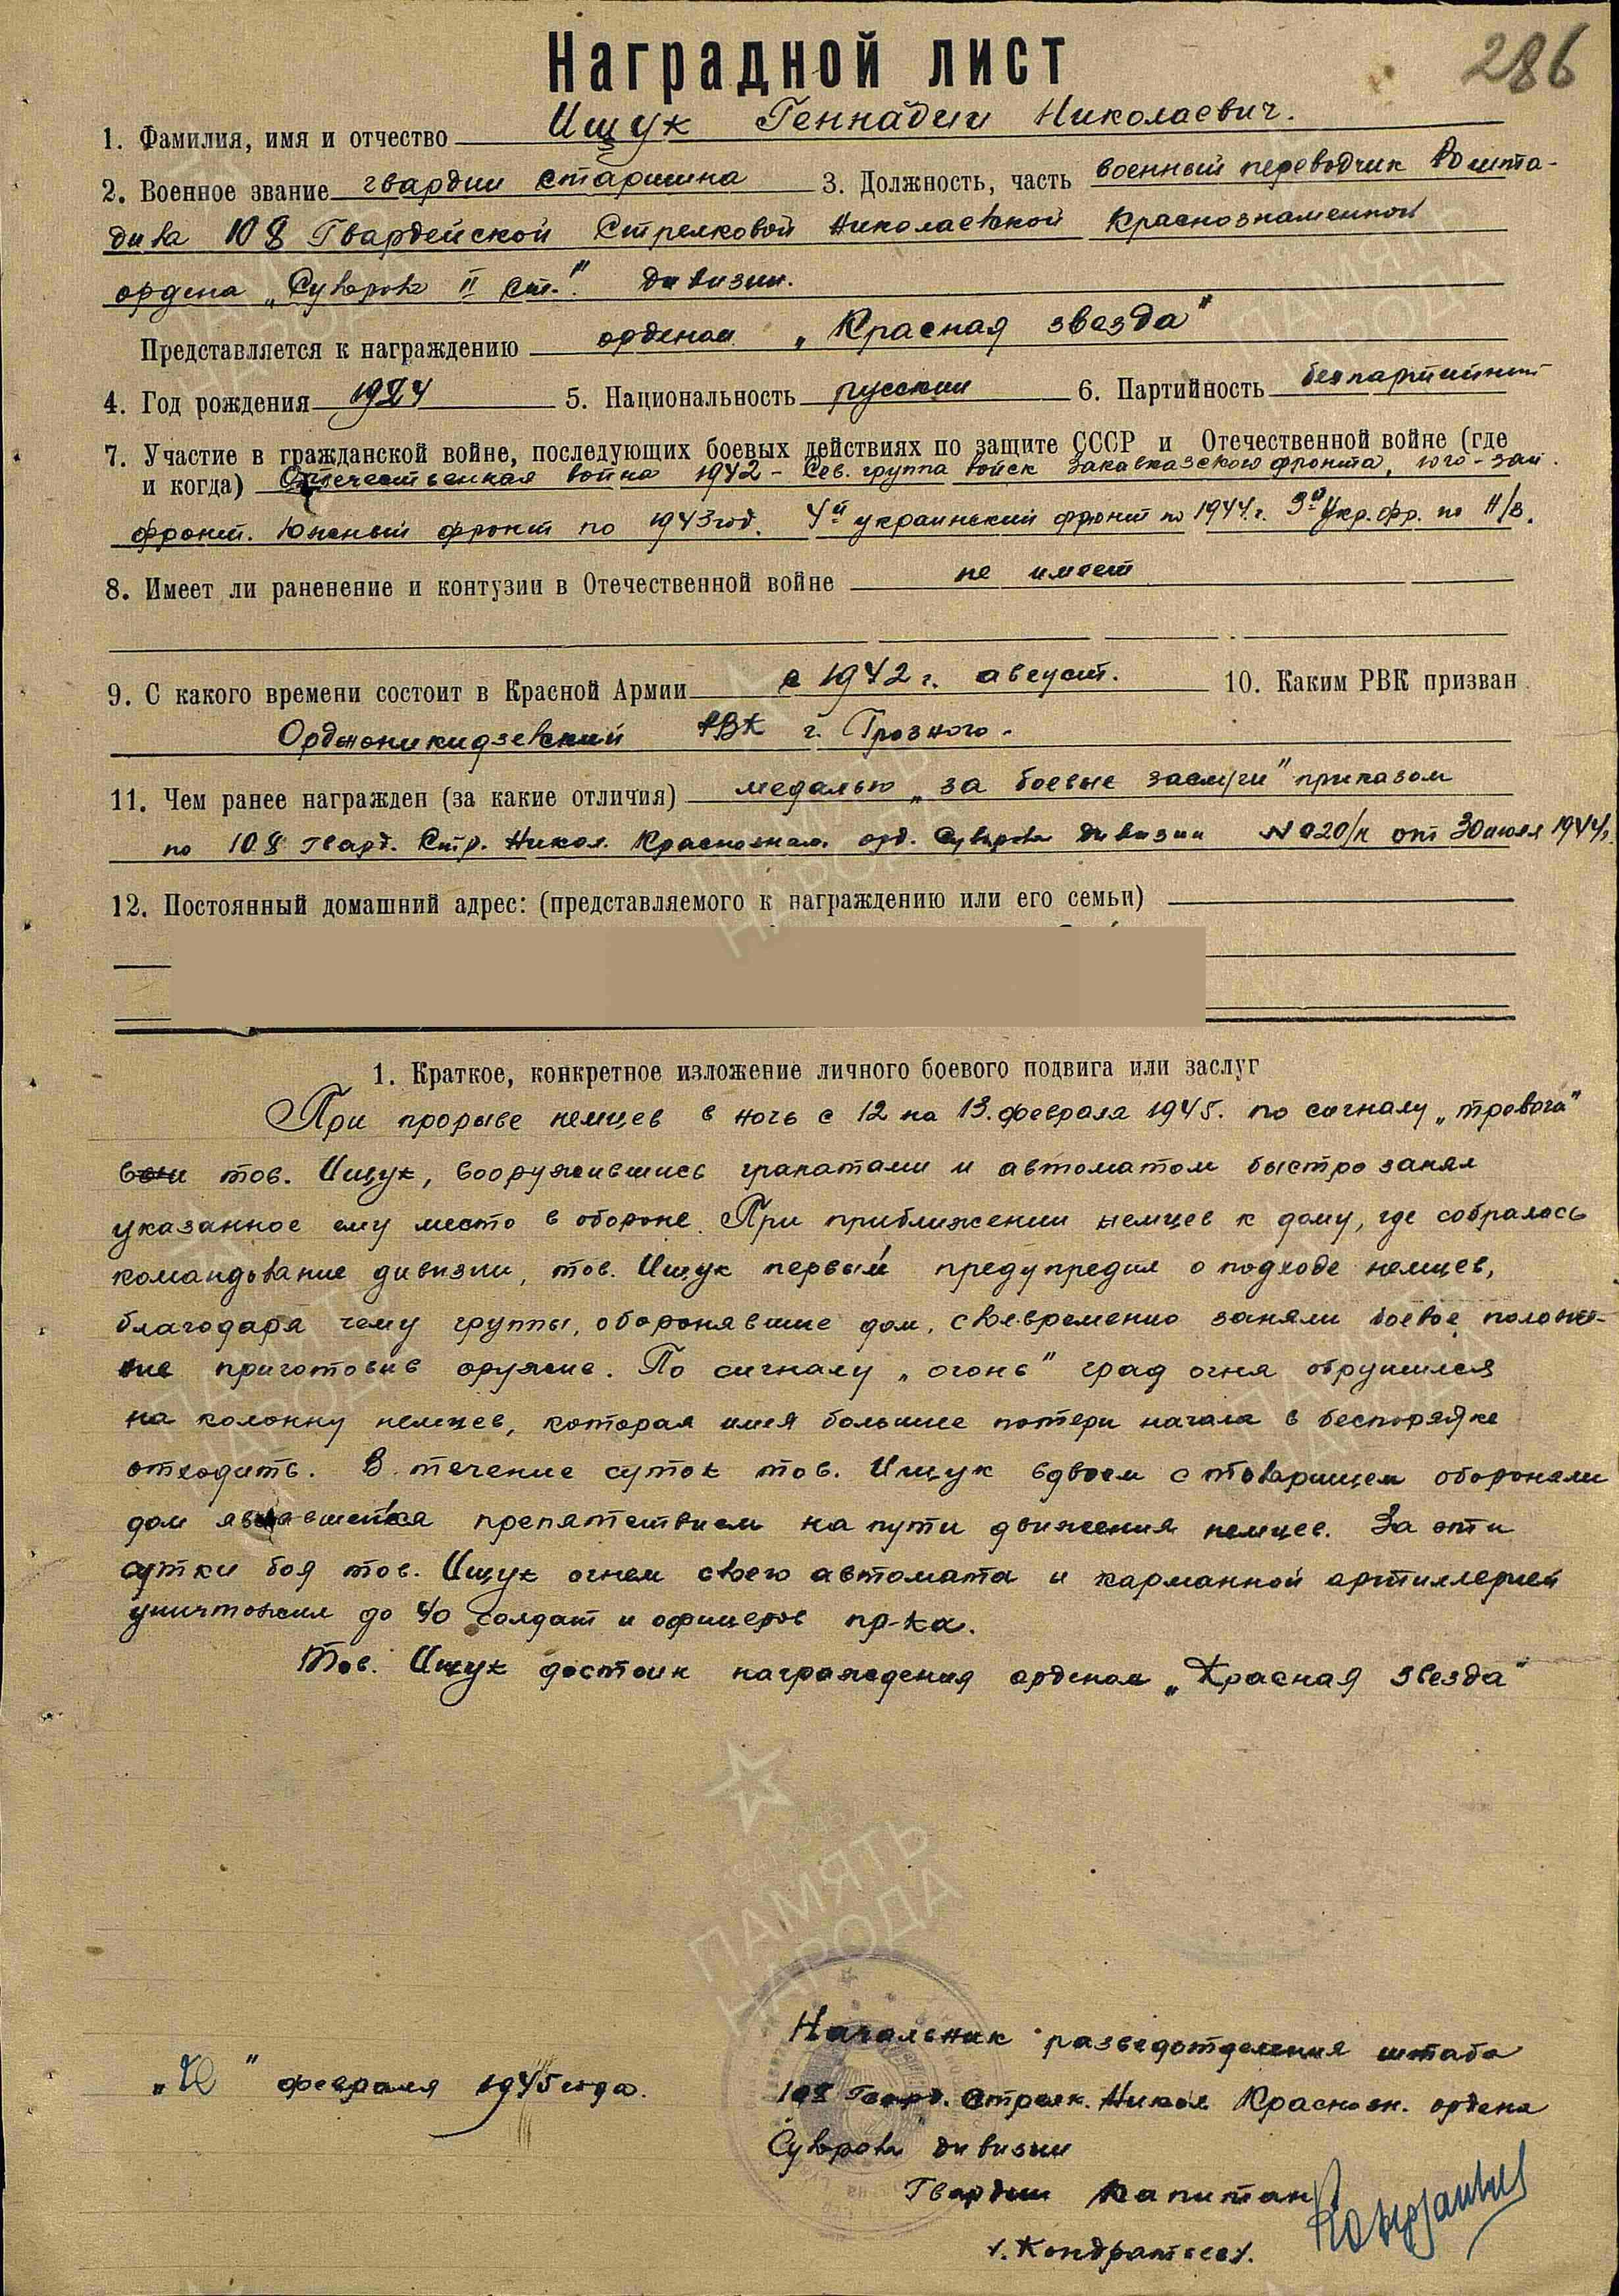 286
Наградной лист
1. Фамилия, имя и отчество Ищук Геннадий Николаевич.
2. Военное звание гвардии старшина 3. Должность, часть военный переводчик РО шта-
дива 108 Гвардейской Стрелковой Николаевской Краснознаменной
ордена „Суворова II ст." дивизии.
Представляется к награждению орденом „Красная звезда"
4. Год рождения 1924 5. Национальность русский 6. Партийность беспартийный
7. Участие в гражданской войне, последующих боевых действиях по защите СССР и Отечественной войне (где
и когда) Отечественная война 1942 - Сев. группа войск Закавказского фронта, юго-зап.
фронт. Южный фронт по 1943 год. 4й украинский фронт по 1944 г. 3й Укр. фр. по н/в.
8. Имеет ли раненение и контузии в Отечественной войне не имеет
9. С какого времени состоит в Красной Армии с 1942 г. август. 10. Каким РВК призван
Орджоникидзевский РВК г. Грозного.
11. Чем ранее награжден (за какие отличия) медалью „за боевые заслуги" приказом
по 108 Гвард. Стр. Никол. Краснознам. орд. Суворова дивизии № 020/н от 30 июля 1944 г.
12. Постоянный домашний адрес: (представляемого к награждению или его семьи)
1. Краткое, конкретное изложение личного боевого подвига или заслуг
При прорыве немцев в ночь с 12 на 13. февраля 1945. по сигналу „тревога"
тов. Ищук, вооружившись гранатами и автоматом быстро занял
указанное ему место в обороне. При приближении немцев к дому, где собралось
командование дивизии, тов. Ищук первый предупредил о подходе немцев,
благодаря чему группы, оборонявшие дом, своевременно заняли боевое положе-
ние приготовив оружие. По сигналу „огонь" град огня обрушился
на колонну немцев, которая имея большие потери начала в беспорядке
отходить. В течение суток тов. Ищук вдвоем с товарищем обороняли
дом являвшейся препятствием на пути движения немцев. За эти
сутки боя тов. Ищук огнем своего автомата и карманной артиллерией
уничтожил до 40 солдат и офицеров пр-ка.
Тов. Ищук достоин награждения орденом „Красная Звезда"
ПАМЯТЬ
НАРОДА
Начальник разведотделения штаба
108 Гвард. Стрелк. Никол Краснозн. ордена
Суворова дивизии
Гвардии Капитан
/. Кондратьев/.
февраля 1945 года.